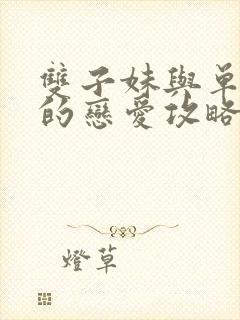 雙子妹與單
的戀愛攻略
燈草